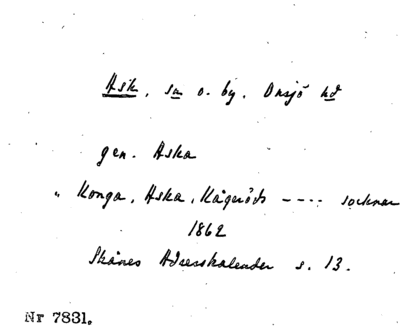 Ask, sn o. by. Onsjö hd
gen. Aska
„ Konga, Aska, Kågeröds ---- socknar
1862
Skånes Adresskalender s. 13.
Nr 7831.